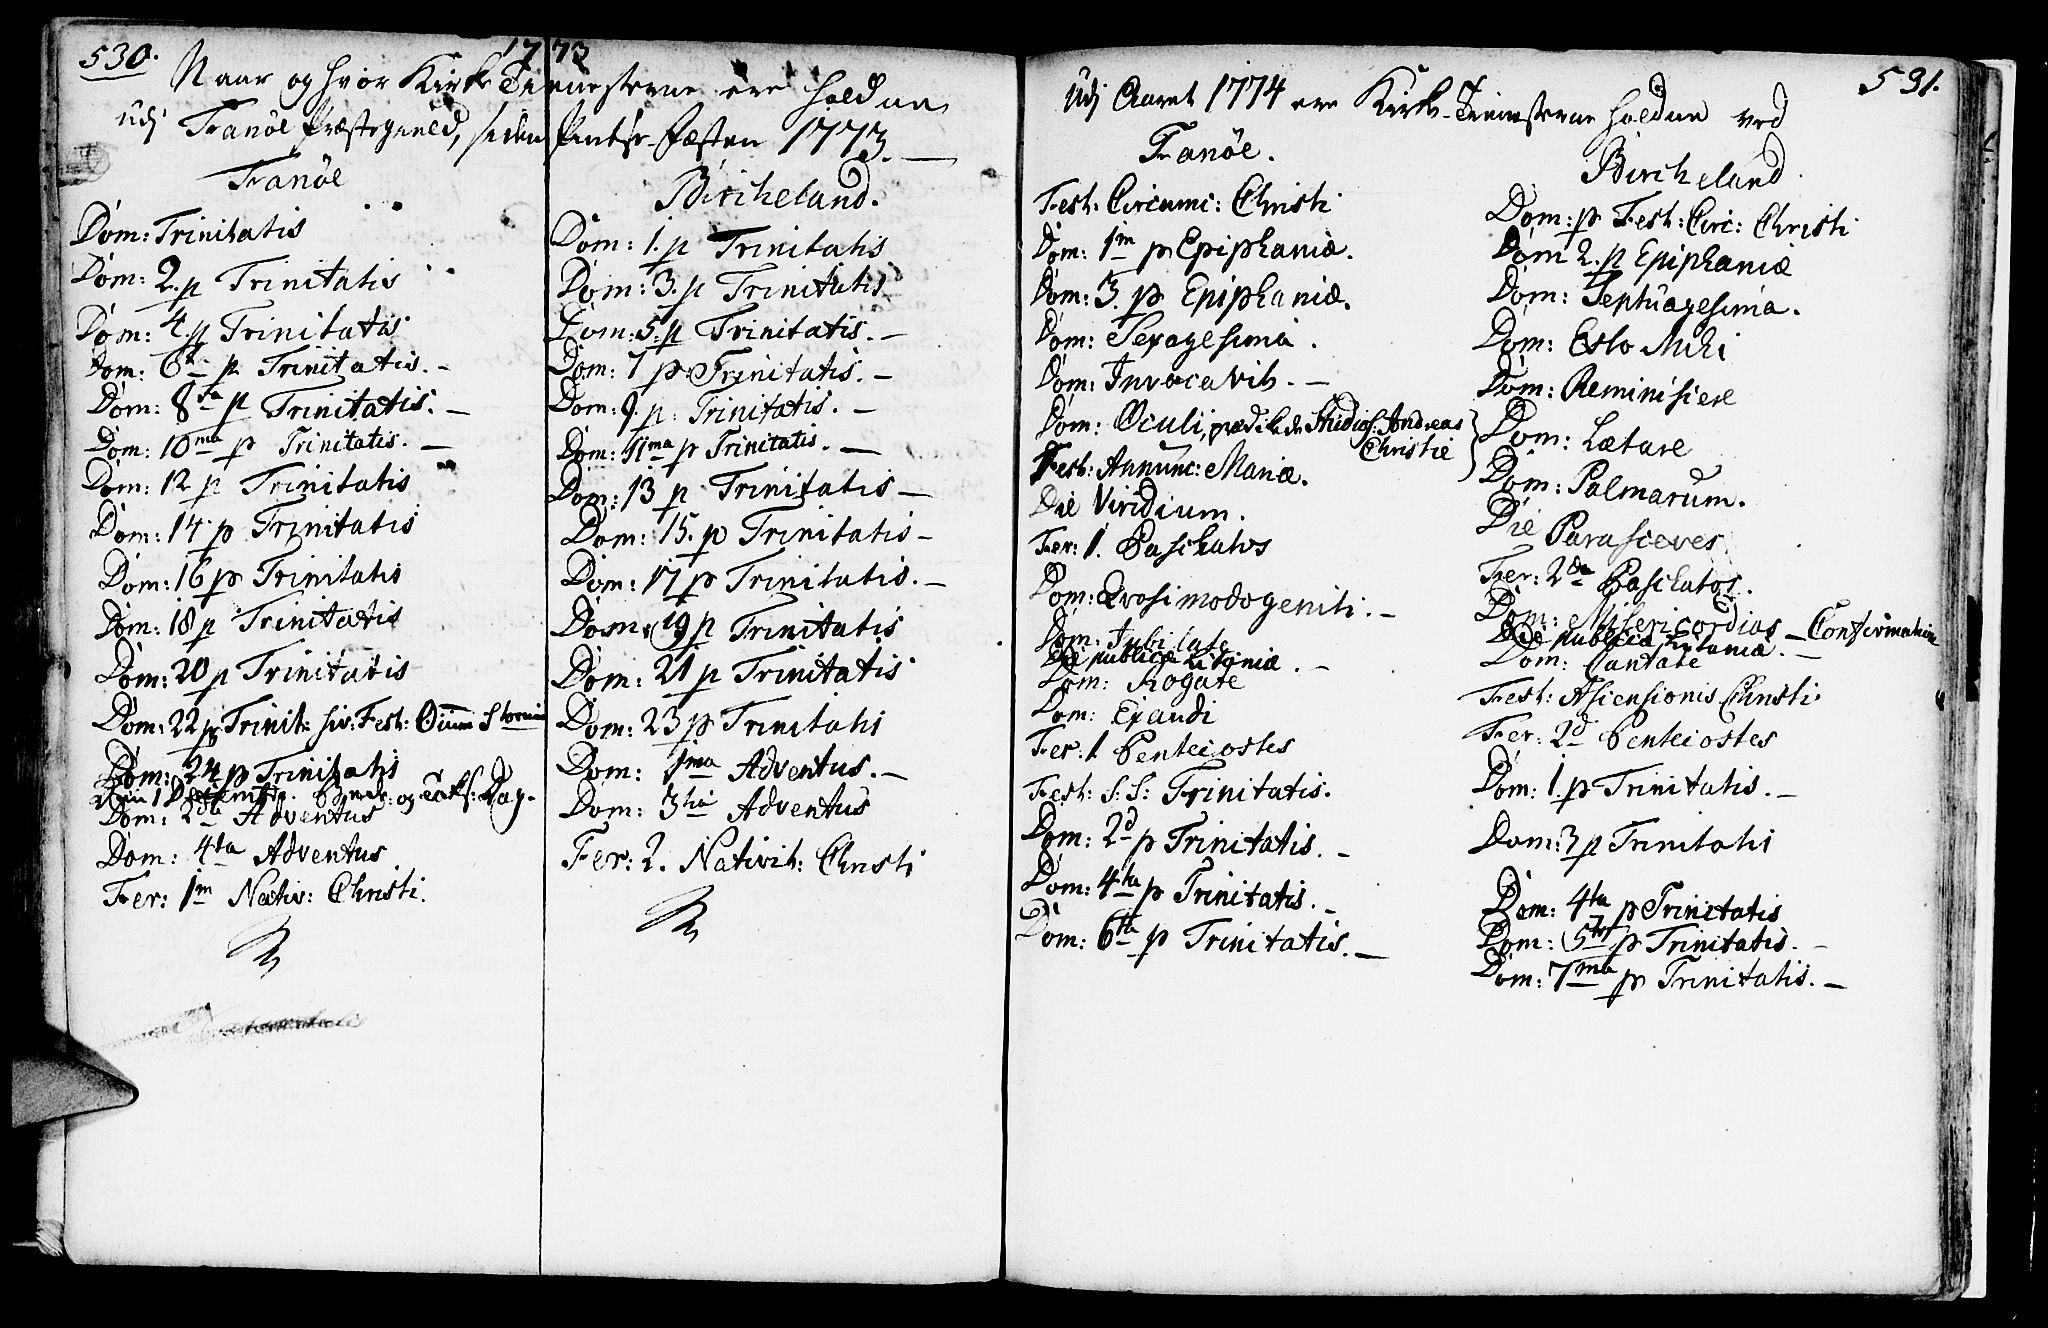 530.
1773
Naar og hvor Kirke Tienesterne ere holdne
udj Tranöe Præstegield, siden Pintse-Fæsten 1773. —
Tranöe
Dom: Trinitatis
Dom: 2. p Trinitatis
Dom: 4 p Trinitatis
Dom: 6te p Trinitatis. —
Dom: 8va p Trinitatis. —
Dom: 10ma p Trinitatis. —
Dom: 12 p Trinitatis
Dom: 14 p Trinitatis
Dom: 16 p Trinitatis
Dom: 18 p Trinitatis
Dom: 20 p Trinitatis
Dom: 22 p Trinit: siv: Fest: Oium Storum
Dom: 24 p Trinitatis
Den 1 Decembr. Bede- og Taks: Dag.
Dom: 2da Adventus
Dom: 4ta Adventus
Fer: 1m Nativ: Christi.
Bircheland.
Dom: 1. p Trinitatis
Dom: 3. p Trinitatis
Dom: 5. p Trinitatis. —
Dom: 7 p Trinitatis. —
Dom: 9. p. Trinitatis. —
Dom: 11ma p Trinitatis. —
Dom: 13 p Trinitatis —
Dom: 15. p Trinitatis —
Dom: 17 p Trinitatis. —
Dom: 19 p Trinitatis
Dom: 21 p Trinitatis
Dom: 23 p Trinitatis
Dom: 1ma Adventus. —
Dom: 3tia Adventus
Fer: 2. Nativit: Christi
531.
Udj Aaret 1774 ere Kirke-Tienesterne holdne ved
Tranöe.
Fest: Circumc: Christi
Dom: 1m p Epiphaniæ.
Dom: 3. p Epiphaniæ.
Dom: Sexagesima.
Dom: Invocavit. —
Dom: Oculi, prædikede Studios: Andreas
Christie
Fest: Annunc: Mariæ.
Die Viridium.
Fer: 1. Paschatos
Dom: Qvasimodogeniti. —
Dom: Jubilate
Die publicæ Litaniæ. —
Dom: Rogate
Dom: Exaudi
Fer: 1 Pentecostes
Fest: S: S: Trinitatis.
Dom: 2d p Trinitatis. —
Dom: 4ta p Trinitatis. —
Dom: 6ta p Trinitatis. —
Bircheland.
Dom: p Fest: Circ: Christi
Dom 2. p Epiphaniæ
Dom: Septuagesima.
Dom: Esto Mihi
Dom: Reminiscere
Dom: Lætare
Dom: Palmarum.
Die Parasceves
Fer: 2da Paschatos.
Dom: Misericordias — Confirmation
Die publicæ Litaniæ. —
Dom: Cantate
Fest: Ascensionis Christi
Fer: 2d Pentecostes
Dom: 1. p Trinitatis. —
Dom: 3 p Trinitatis
Dom: 4ta p Trinitatis
Dom: 5ta p Trinitatis. —
Dom: 7ma p Trinitatis. —